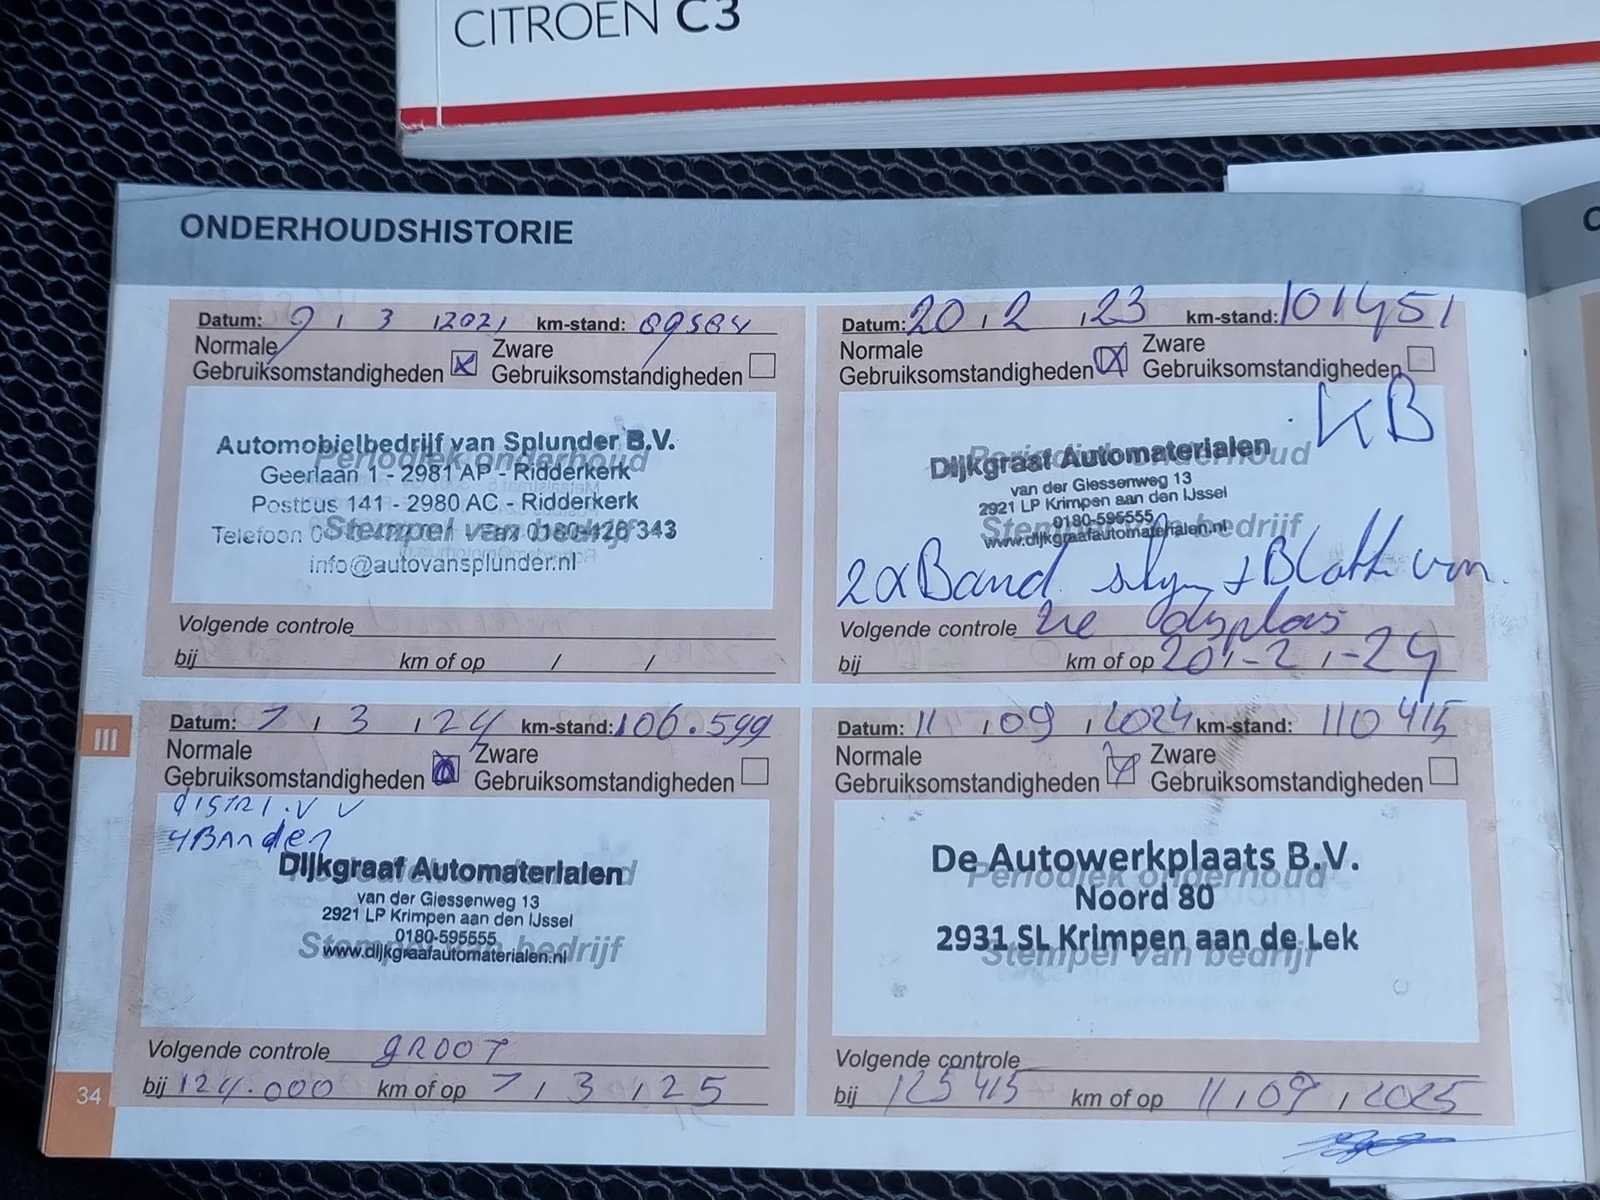 CITROËN C3
ONDERHOUDSHISTORIE
Datum: 9 / 3 / 2021 km-stand: 89584
Normale Gebruiksomstandigheden Zware Gebruiksomstandigheden
Periodiek onderhoud
Stempel van bedrijf
Automobielbedrijf van Splunder B.V.
Geerlaan 1 - 2981 AP - Ridderkerk
Postbus 141 - 2980 AC - Ridderkerk
Telefoon Fax 0180-426 343
info@autovansplunder.nl
Volgende controle
bij km of op / /
Datum: 20 / 2 / 23 km-stand: 101451
Normale Gebruiksomstandigheden Zware Gebruiksomstandigheden
KB
Periodiek onderhoud
Stempel van bedrijf
Dijkgraaf Automaterialen
van der Giessenweg 13
2921 LP Krimpen aan den IJssel
0180-595555
www.dijkgraafautomaterialen.nl
2x Band + Blatt von
Volgende controle
bij km of op 20 / - 2 / - 24
III
Datum: 7 / 3 / 24 km-stand: 106.599
Normale Gebruiksomstandigheden Zware Gebruiksomstandigheden
DISTRI. V V
4 BANden
Periodiek onderhoud
Stempel van bedrijf
Dijkgraaf Automaterialen
van der Giessenweg 13
2921 LP Krimpen aan den IJssel
0180-595555
www.dijkgraafautomaterialen.nl
Volgende controle GROOT
bij 124.000 km of op 7 / 3 / 25
Datum: 11 / 09 / 2024 km-stand: 110 415
Normale Gebruiksomstandigheden Zware Gebruiksomstandigheden
Periodiek onderhoud
Stempel van bedrijf
De Autowerkplaats B.V.
Noord 80
2931 SL Krimpen aan de Lek
Volgende controle
bij 125 415 km of op 11 / 09 / 2025
34